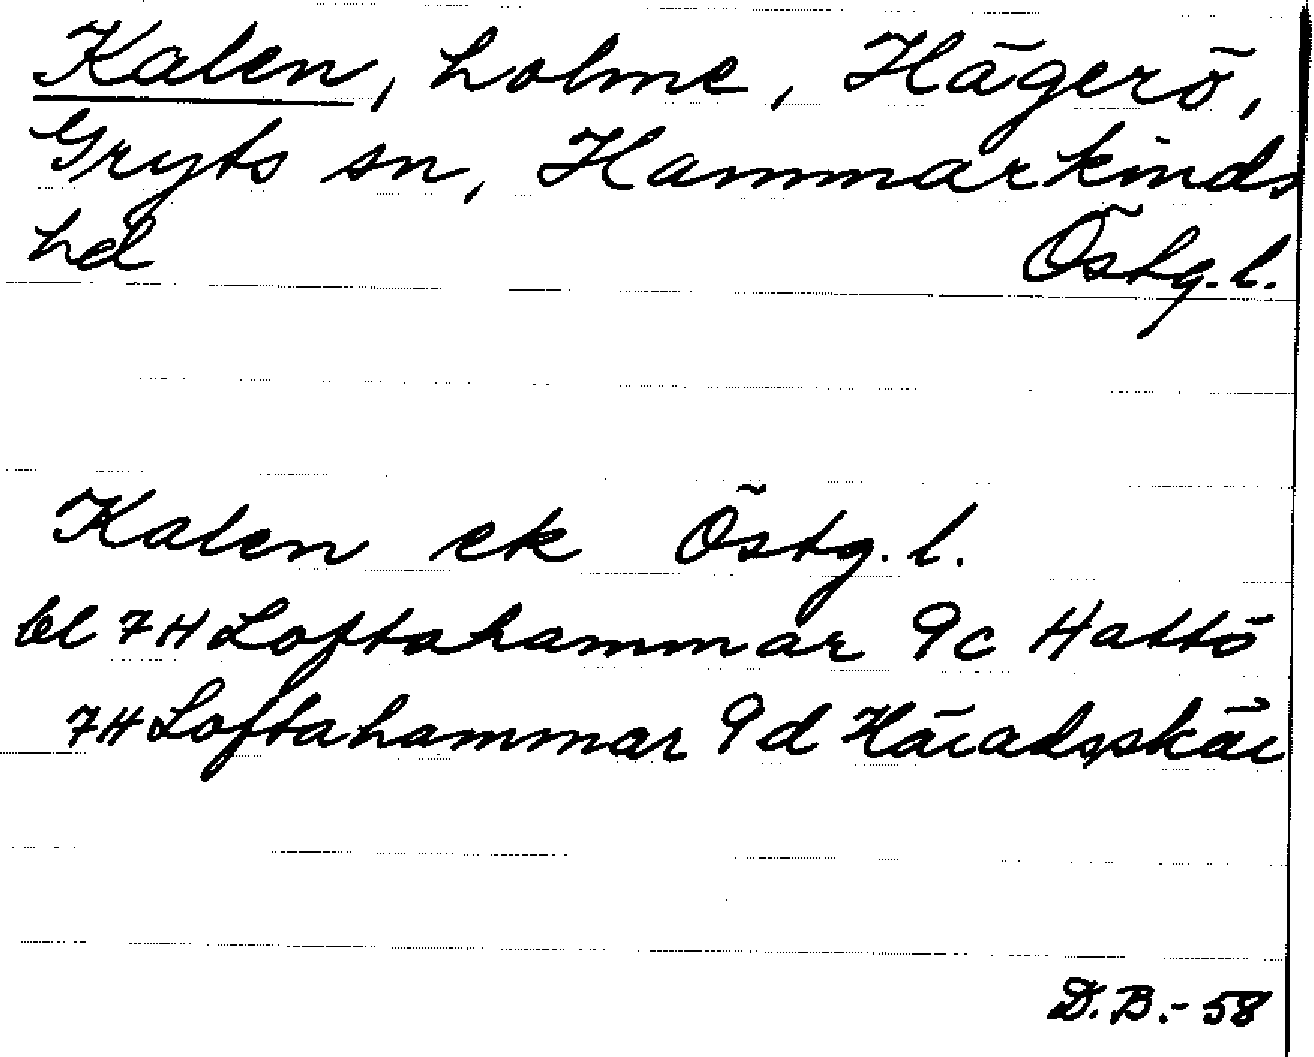 Kalen, holme, Hägerö,
Gryts sn, Hammarkinds
hd Östg.l.
Kalen ek Östg.l.
bl 7H Loftahammar 9c Hattö
7H Loftahammar 9d Häradsskär
D.B.-58